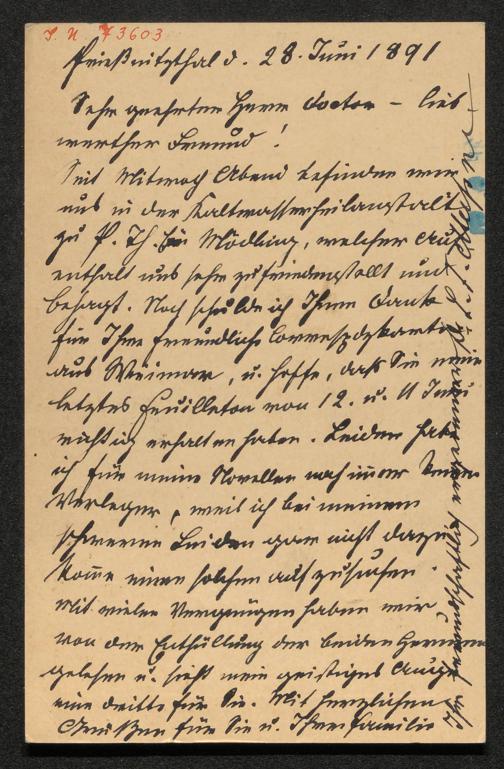 I. N. 73603
Prießnitzthal d. 28. Juni 1891
Sehr geehrter Herr Doctor – lieb
werther Freund!
Seit Mittwoch Abend befinden wir
uns in der Kaltwasserheilanstalt
zu P. Th. bei Mödling, welcher Auf
enthalt uns sehr zufriedenstellt und
behagt. Noch schulde ich Ihnen Dank
für Ihre freundliche Correspdzkarte
aus Weimar, u. hoffe, daß Sie mein
letztes Feuilleton von 12. u. 11 Juni
richtig erhalten haben. Leider habe
ich für meine Novellen noch immer keinen
Verleger, weil ich bei meinem
schweren Leiden gar nicht dazu
komme einen solchen aufzusuchen.
Mit vielen Vergnügen haben wir
von der Enthüllung der beiden Hermen
gelesen u. sieht mein geistiges Auge
eine dritte für Sie. Mit herzlichen
Grüßen für Sie u. Ihre Familie
Ihr freundschaftlich ergebener